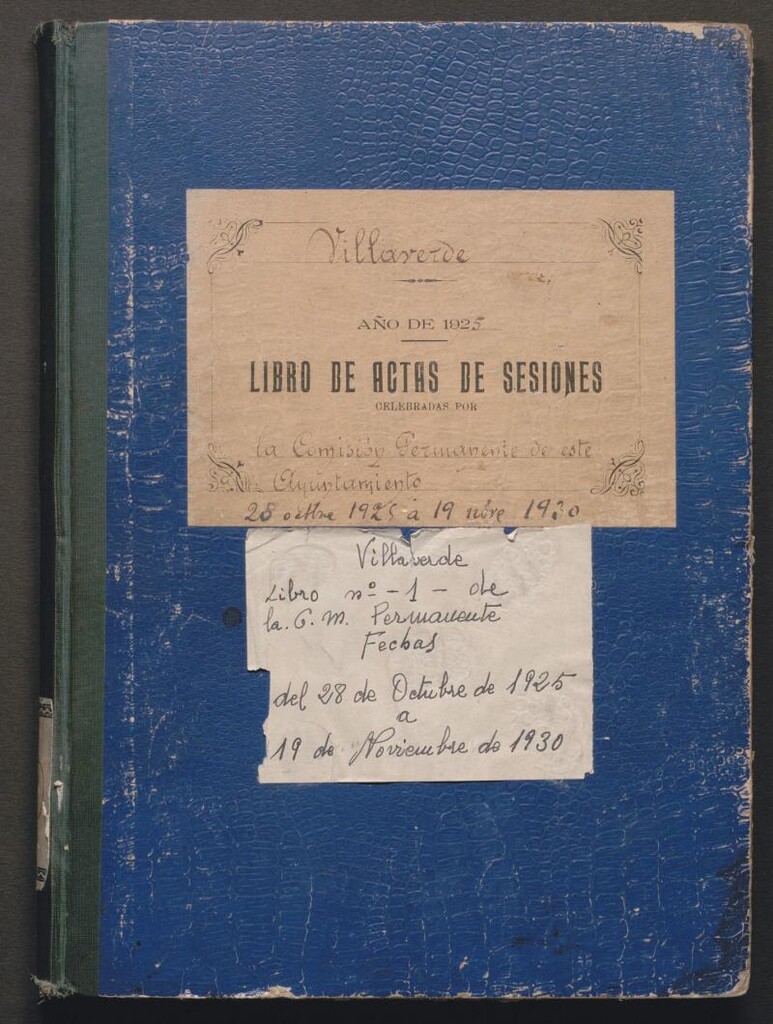 Villaverde
AÑO DE 1925
LIBRO DE ACTAS DE SESIONES
CELEBRADAS POR
la Comisión Permanente de este
Ayuntamiento
28 octbre 1925 a 19 nbre 1930
Villaverde
Libro nº - 1 - de
la. C. M. Permanente
Fechas
del 28 de Octubre de 1925
a
19 de Noviembre de 1930